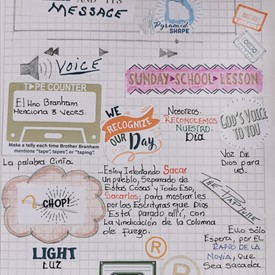 MESSAGE
Pyramid
SHAPE
VOICE
SUNDAY SCHOOL LESSON
TAPE COUNTER
El Hno Branham
Menciona 8 veces.
Make a tally each time Brother Branham
mentions "tape", "tapes" or "taping".
WE
RECOGNIZE
OUR
Day
Nosotros
RECONOCEMOS
NUESTRO
Dia
GOD'S VOICE
TO YOU
Voz DE
Dios para
La palabra Cinta.
CHOP!
..Estoy Intentando Sacar
un pueblo, Separado de
Estas Cosas y Todo Eso,
Sacarlos; para mostrarles
por las Escrituras que Dios
Esta parado allí, con
La Vindicación de la Columna
de fuego.
THE RAPTURE
Ello sólo
Espera, por El
RAPTO DE LA
NOVIA, Que
LIGHT
LUZ
R
R